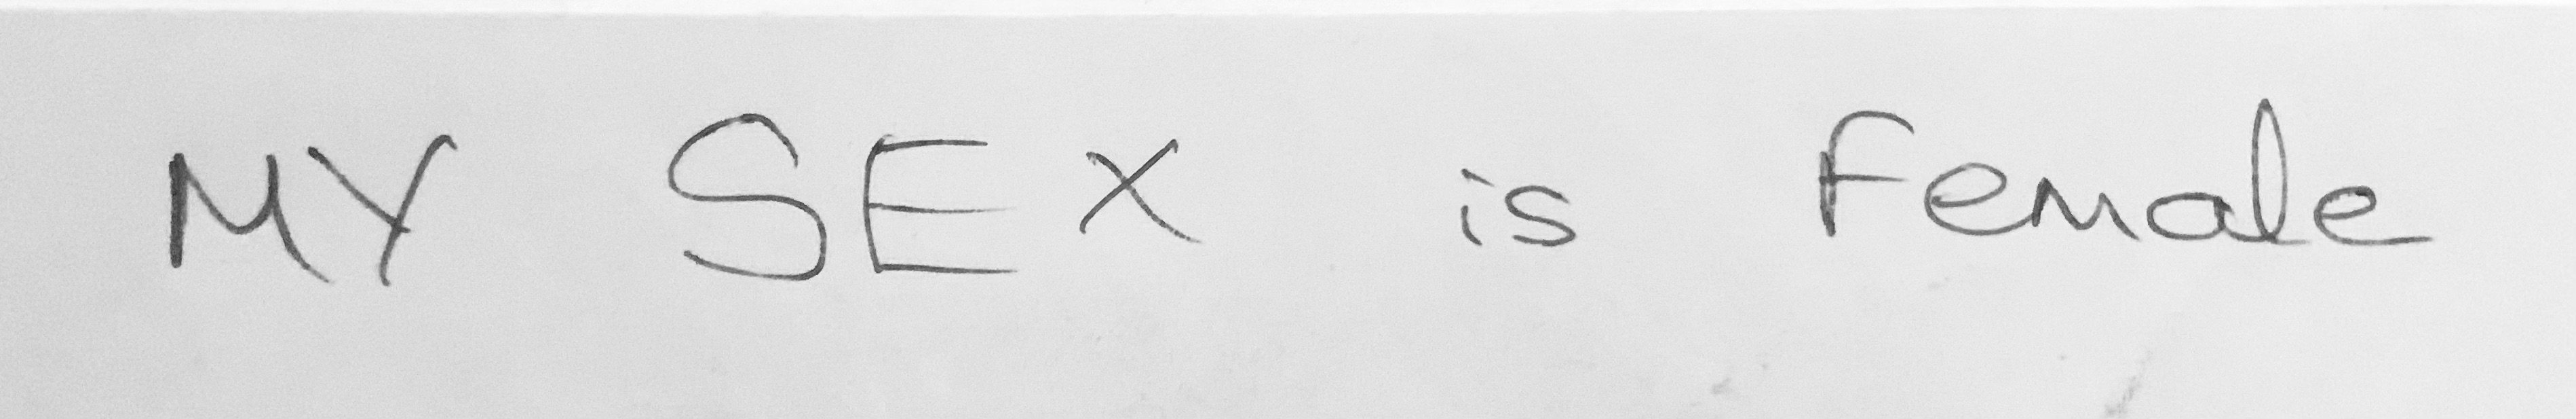 MY SEX is Female